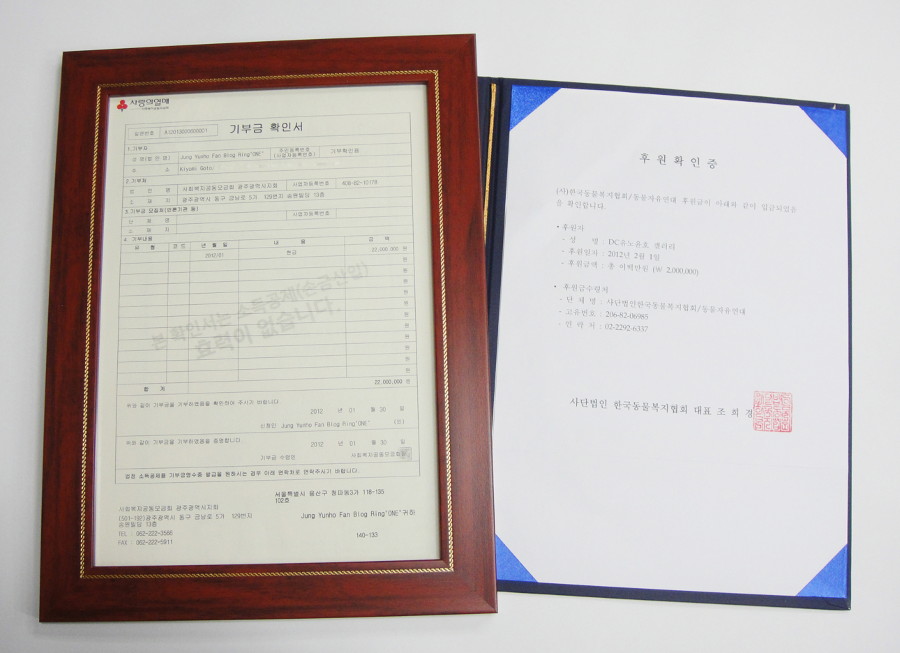 사랑의열매
기부금 확인서
일련번호
1.기부자
Jung Yunho Fan Blog Ring"ONE"
주민등록번호
(사업자등록번호)
기부확인용
주 소
Kiyoshi Goto
2.기부처
법 인 명
사회복지공동모금회 광주광역시지회
사업자등록번호
소 재 지
광주광역시 동구 금남로 5가 129번지 송원빌딩 13층
사업자등록번호
4. 기부내용
유 형
코 드
년 월 일
내 용
금 액
2012/01
현금
22,000,000 원
원
원
원
원
원
원
원
원
원
본 확인서는 소득공제(손금산입)
효력이 없습니다.
합 계
22,000,000 원
위와 같이 기부금을 기부하였음을 확인하여 주시기 바랍니다.
2012 년 01 월 30 일
신청인 Jung Yunho Fan Blog Ring"ONE" (인)
위와 같이 기부금을 기부하였음을 증명합니다.
2012 년 01 월 30 일
기부금 수령인
서울특별시 용산구 청파동3가 118-135
102호
사회복지공동모금회 광주광역시지회
광주광역시 동구 금남로 5가 129번지
송원빌딩 13층
Jung Yunho Fan Blog Ring"ONE"귀하
TEL : 062-222-3566
FAX : 062-222-5811
140-133
후원확인증
(사)한국동물복지협회/동물자유연대 후원금이 아래와 같이 입금되었음
을 확인합니다.
• 후원자
- 성 명 : DC유노윤호 갤러리
- 후원일자 : 2012년 2월 1일
- 후원금액 : 총 이백만원 (₩ 2,000,000)
• 후원금수령처
- 단 체 명 : 사단법인한국동물복지협회/동물자유연대
- 고유번호 : 206-82-06985
- 연 락 처 : 02-2292-6337
사단법인 한국동물복지협회 대표 조 희 경